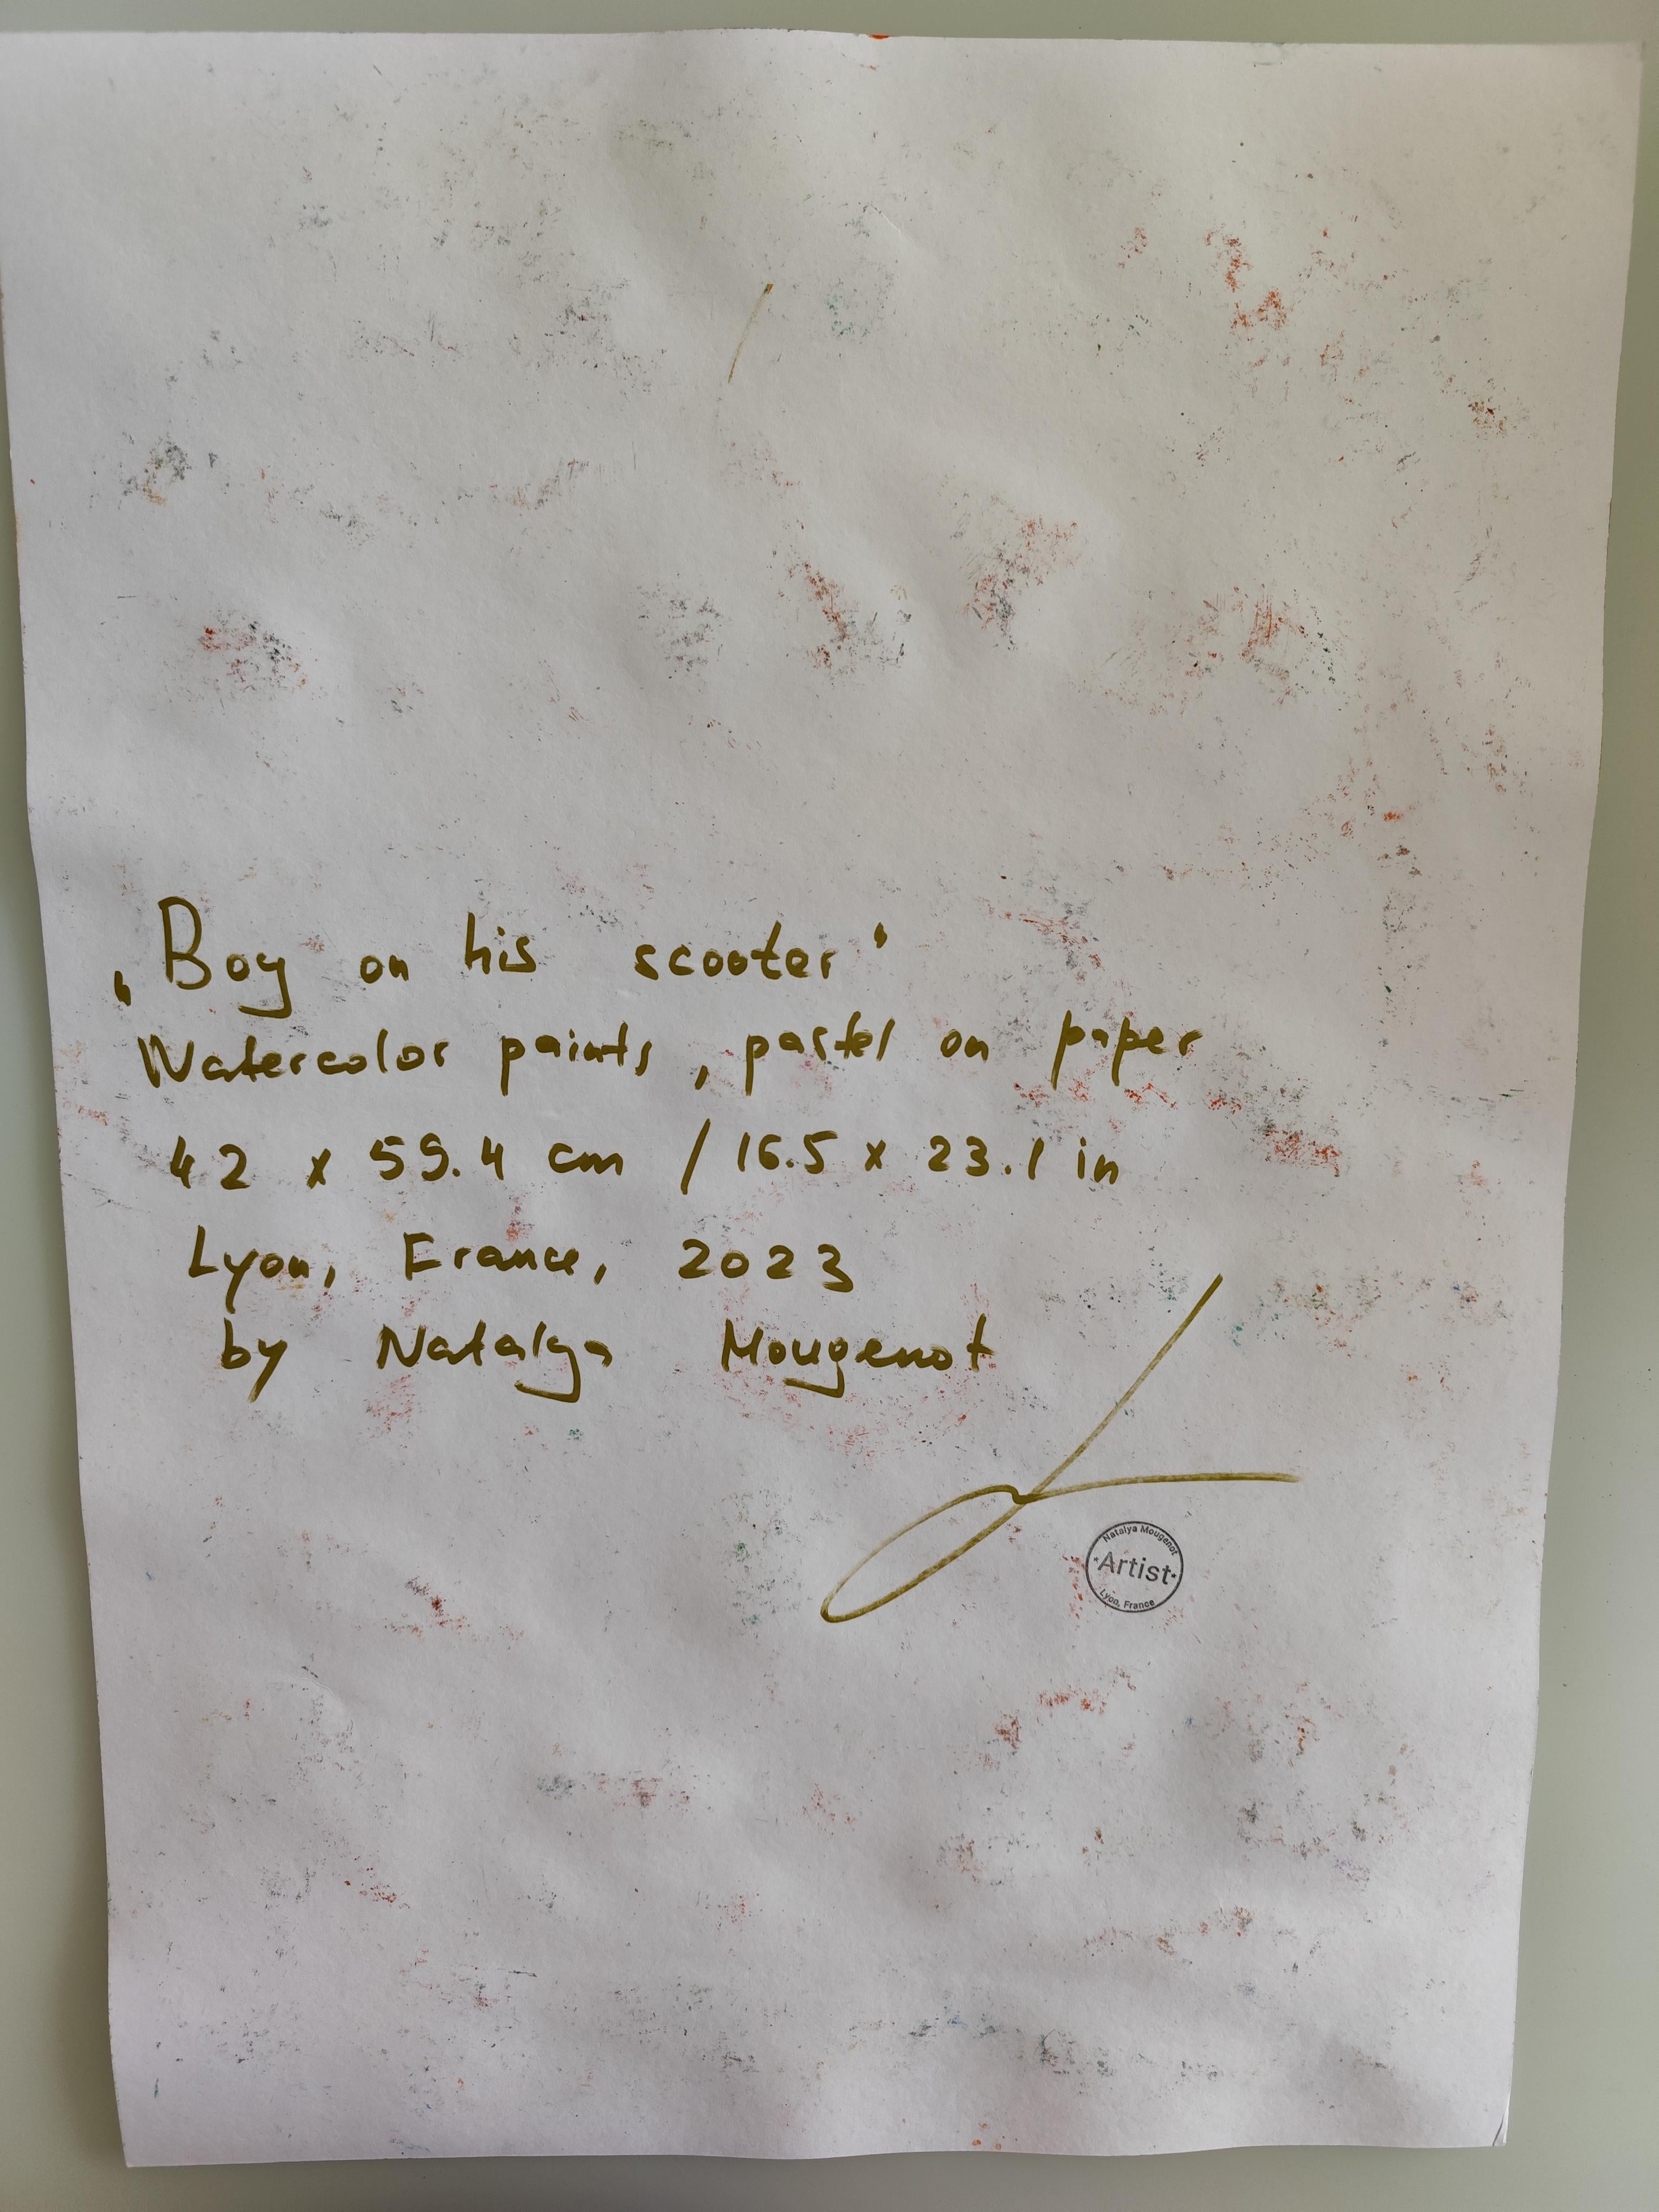 „Boy on his scooter"
Watercolor paints, pastel on paper
42 x 59.4 cm / 16.5 x 23.1 in
Lyon, France, 2023
by Natalya Mougenot
Natalya Mougenot
Artist
Lyon, France